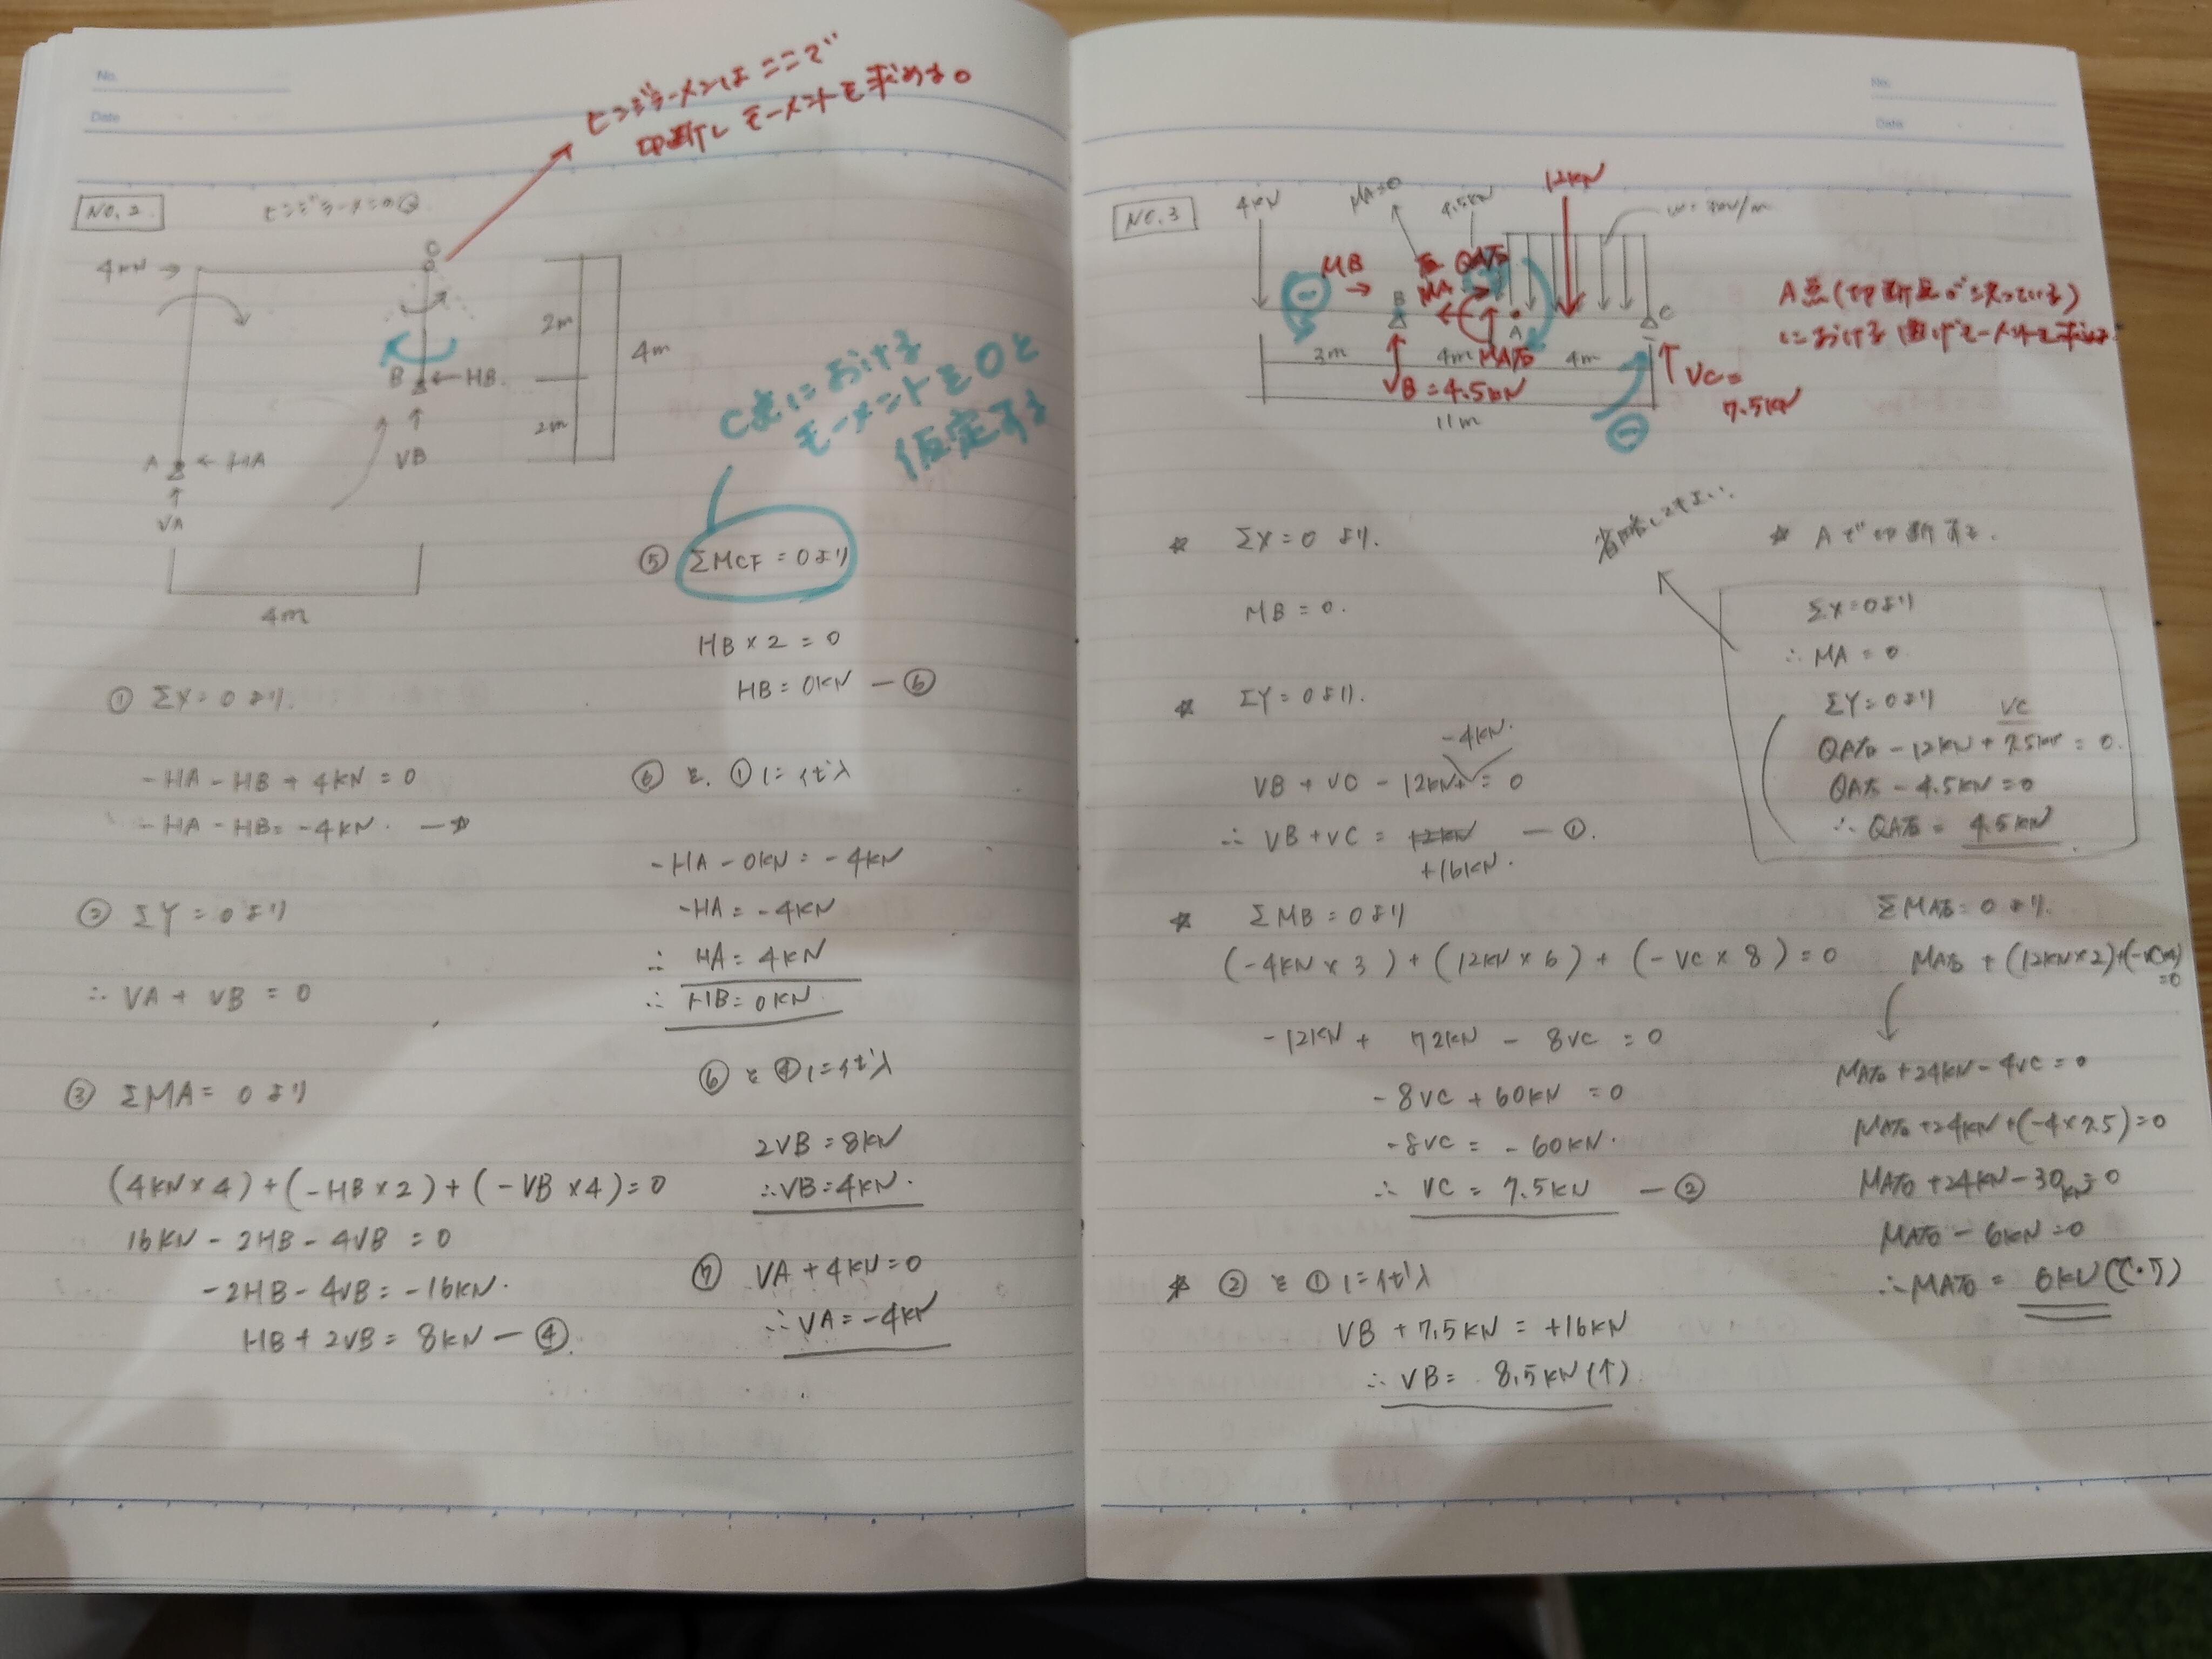 No.
Date
ヒンジラーメンはここで
切断し モーメントを求める。
NO.2
ヒンジラーメンの
4kN →
C
2m
4m
B
←HB
2m
A
←HA
VB
VA
4m
C点における
モーメントを0と
仮定する
① ΣX=0より.
-HA-HB+4kN=0
-HA-HB=-4kN. —☆
② ΣY=0より
∴ VA+VB=0
③ ΣMA=0より
(4kN×4)+(-HB×2)+(-VB×4)=0
16kN-2HB-4VB=0
-2HB-4VB=-16kN.
HB+2VB=8kN—④.
⑤ ΣMCF=0より
HB×2=0
HB=0kN —⑥
⑥を、①に代入
-HA-0kN=-4kN
-HA=-4kN
∴ HA=4kN
∴ HB=0kN
⑥を④に代入
2VB=8kN
∴VB=4kN.
⑦ VA+4kN=0
∴VA=-4kN
No.
Date
NO.3
4kN
MA=0
4.5kN
12kN
MB →
QA右
MA
B
A
C
⊖
3m
4m
MA右
4m
VB=4.5kN
VC=
7.5kN
⊖
11m
A点(切断
における 曲げモーメントを求める
☆ ΣX=0より.
MB=0.
☆ ΣY=0より.
-4kN.
VB+VC-12kN=0
∴ VB+VC=12kN —①.
+16kN.
☆ ΣMB=0より
(-4kN×3)+(12kN×6)+(-VC×8)=0
-12kN+72kN-8VC=0
-8VC+60kN=0
-8VC=-60kN.
∴ VC=7.5kN —②
☆ ②を①に代入
VB+7.5kN=+16kN
∴ VB=8.5kN(↑)
省略してもよい
☆ Aで切断する.
ΣX=0より
∴ MA=0
ΣY=0より
VC
QA右-12kN+7.5kN=0.
QA右-4.5kN=0
∴ QA右=4.5kN
ΣMA右=0より.
MA右+(12kN×2)+(-VC×4)
=0
MA右+24kN-4VC=0
MA右+24kN+(-4×7.5)=0
MA右+24kN-30kN=0
MA右-6kN=0
∴MA右=6kN